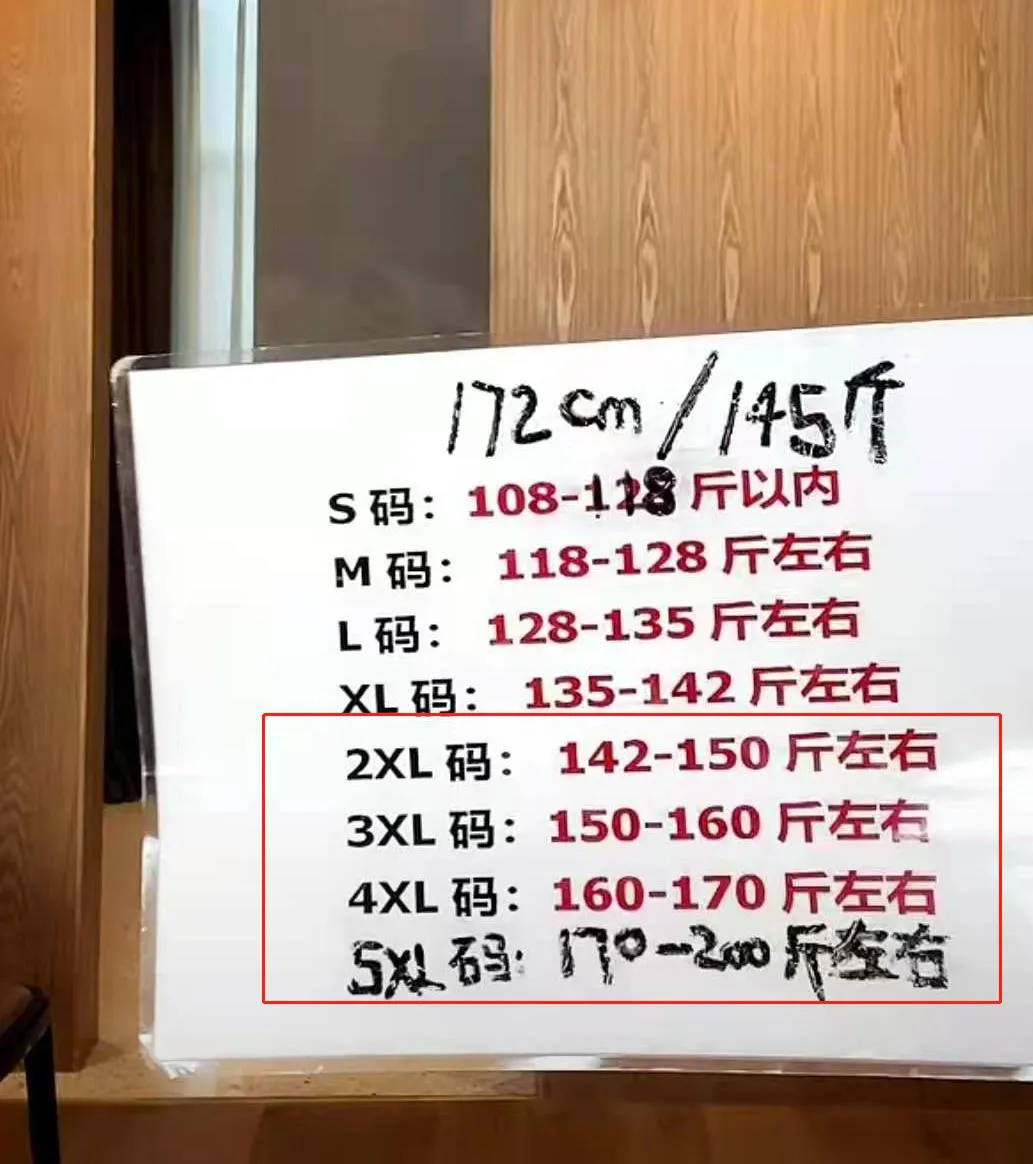 172cm/145斤
S 码：108-118 斤以内
M 码：118-128 斤左右
L 码：128-135 斤左右
XL 码：135-142 斤左右
2XL 码：142-150 斤左右
3XL 码：150-160 斤左右
4XL 码：160-170 斤左右
5XL 码：170-200 斤左右